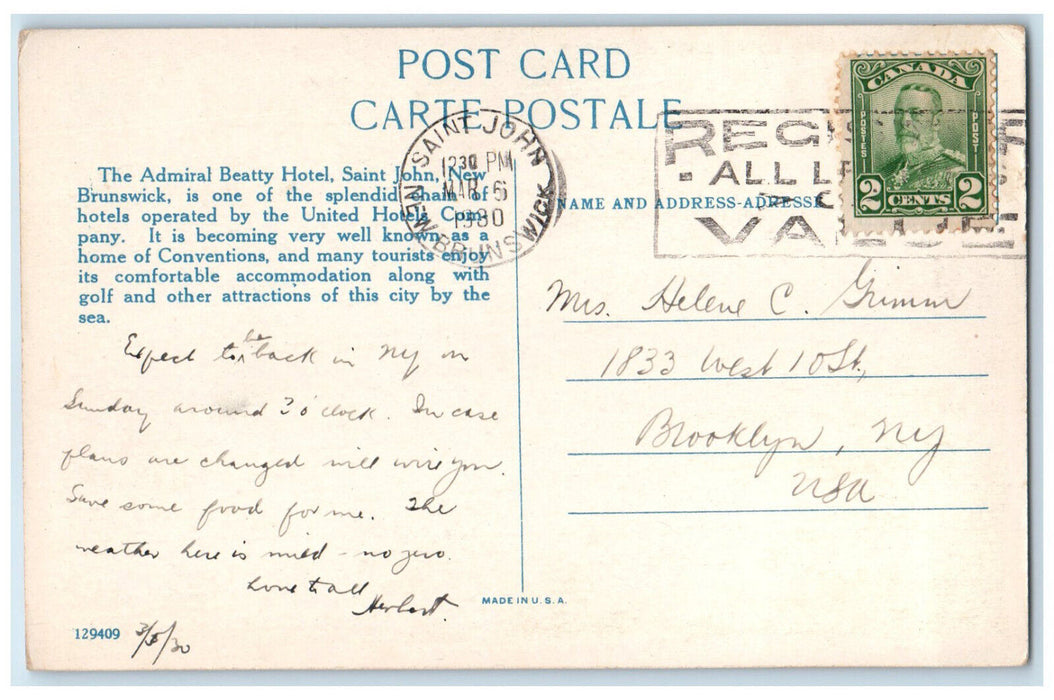 POST CARD
CARTE POSTALE
CANADA
POSTES
POST
2 CENTS 2
SAINT JOHN
1230 PM
MAR 6
1930
NEW BRUNSWICK
REG
ALL L
VAL
The Admiral Beatty Hotel, Saint John, New
Brunswick, is one of the splendid chain of
hotels operated by the United Hotels Com-
pany. It is becoming very well known as a
home of Conventions, and many tourists enjoy
its comfortable accommodation along with
golf and other attractions of this city by the
sea.
NAME AND ADDRESS-ADRESSE
Expect to be back in NY on
Sunday around 3 o'clock. In case
plans are changed will wire you.
Save some food for me. The
weather here is mild - no zero.
Love to all
Herbert.
Mrs. Helene C. Grimm
1833 West 10 St,
Brooklyn, NY
USA
MADE IN U.S.A.
129409
3/5/30